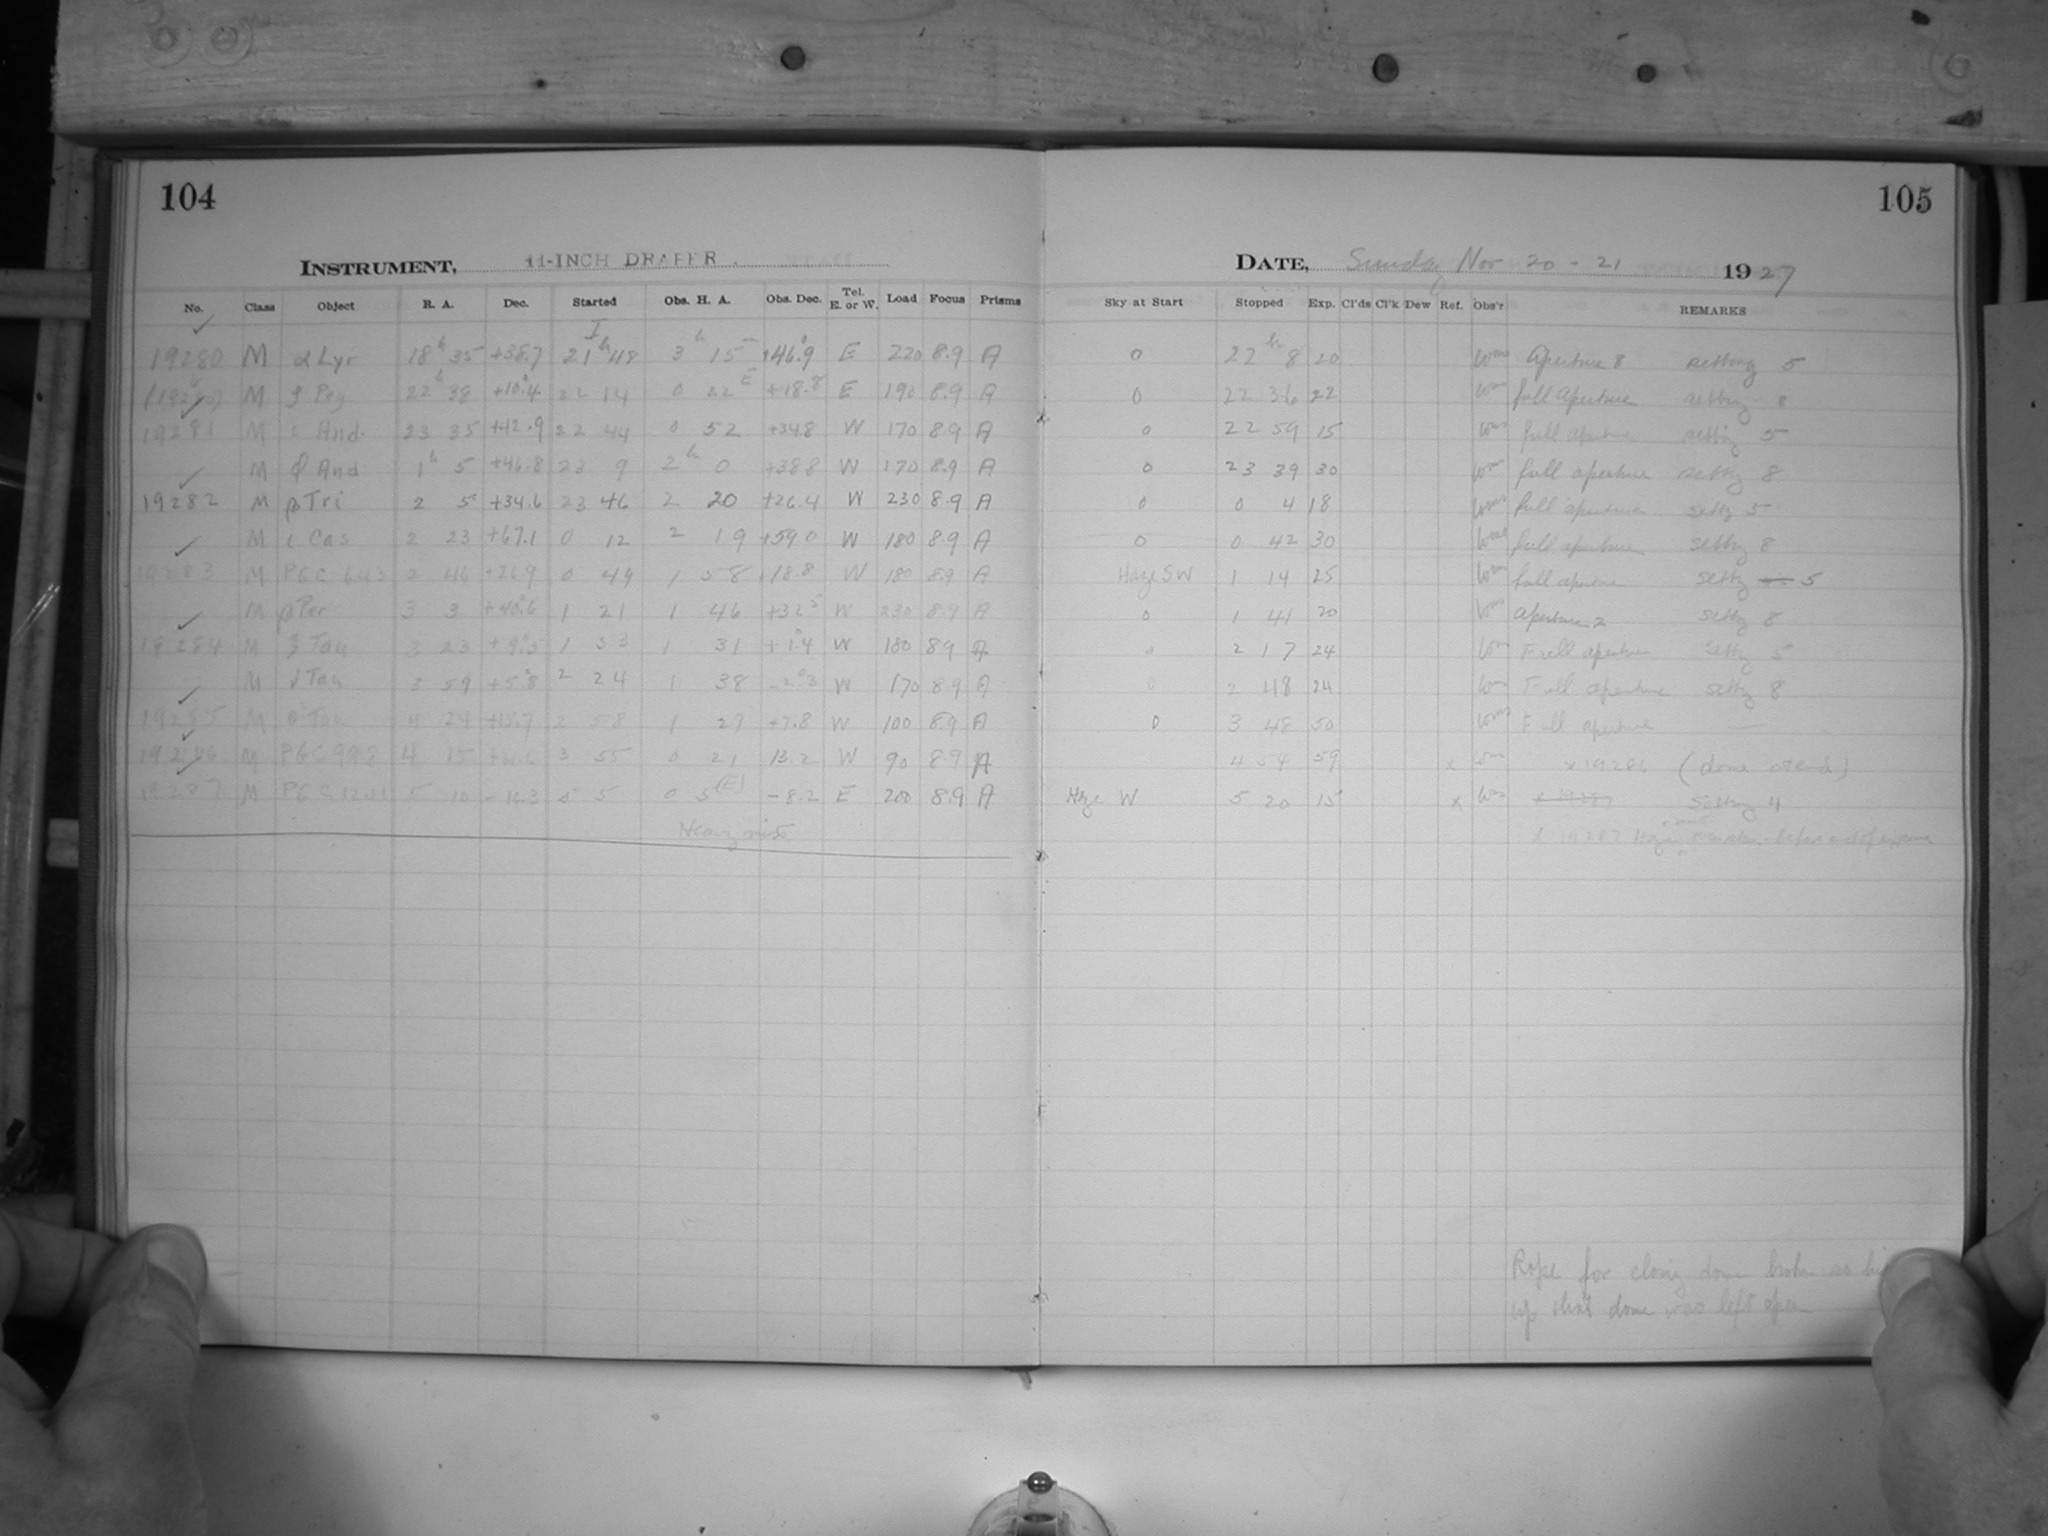 104
105
INSTRUMENT, 11-INCH DRAPER.
DATE, Sunday Nov 20 - 21 1927
No. Class Object R. A. Dec. Started Obs. H. A. Obs. Dec. Tel. E. or W. Load Focus Prisms Sky at Start Stopped Exp. Cl'ds Cl'k Dew Ref. Obs'r REMARKS
19280 M α Lyr 18h 35 +38.7 21h 48 3h 15m +46.9 E 220 8.9 A 0 22h 8 20 Aperture 8 setting 5
M ζ Peg 22h 38 +10.4 22 14 0 22E +18.8 E 190 8.9 A 0 22 36 22 full aperture setting 8
19281 M ι And. 23 35 +42.9 22 44 0 52 +34.8 W 170 8.9 A 0 22 59 15 full aperture setting 5
M φ And 1h 5 +46.8 23 9 2h 0 +38.8 W 170 8.9 A 0 23 39 30 full aperture setting 8
19282 M β Tri 2 5 +34.6 23 46 2 20 +26.4 W 230 8.9 A 0 0 4 18 full aperture setting 5
M ι Cas 2 23 +67.1 0 12 2 19 +59.0 W 180 8.9 A 0 0 42 30 full aperture setting 8
19283 M PGC 643 2 46 +26.9 0 49 1 58 +18.8 W 180 8.9 A Haze SW 1 14 25 full aperture setting 5
M β Per 3 3 +40.6 1 21 1 46 +32.5 W 230 8.9 A 0 1 41 20 aperture 2 setting 8
19284 M ξ Tau 3 23 +9.5 1 53 1 31 +1.4 W 180 8.9 A 0 2 17 24 Full aperture setting 5
M ν Tau 3 59 +5.8 2 24 1 38 -2.3 W 170 8.9 A 0 2 48 24 Full aperture setting 8
19285 M Tau 4 24 +15.7 2 58 1 27 +7.8 W 100 8.9 A 0 3 48 50 Full aperture —
19286 M PGC 998 4 15 3 55 0 21 13.2 W 90 8.9 A 4 54 59 x x 19286 (dome
19287 M PGC 1241 5 10 -16.3 5 5 0 5(E) -8.2 E 200 8.9 A Haze W 5 20 15 x Setting 4
x 19287 before end of exposure
Rope for closing dome broke as
up that dome was left open